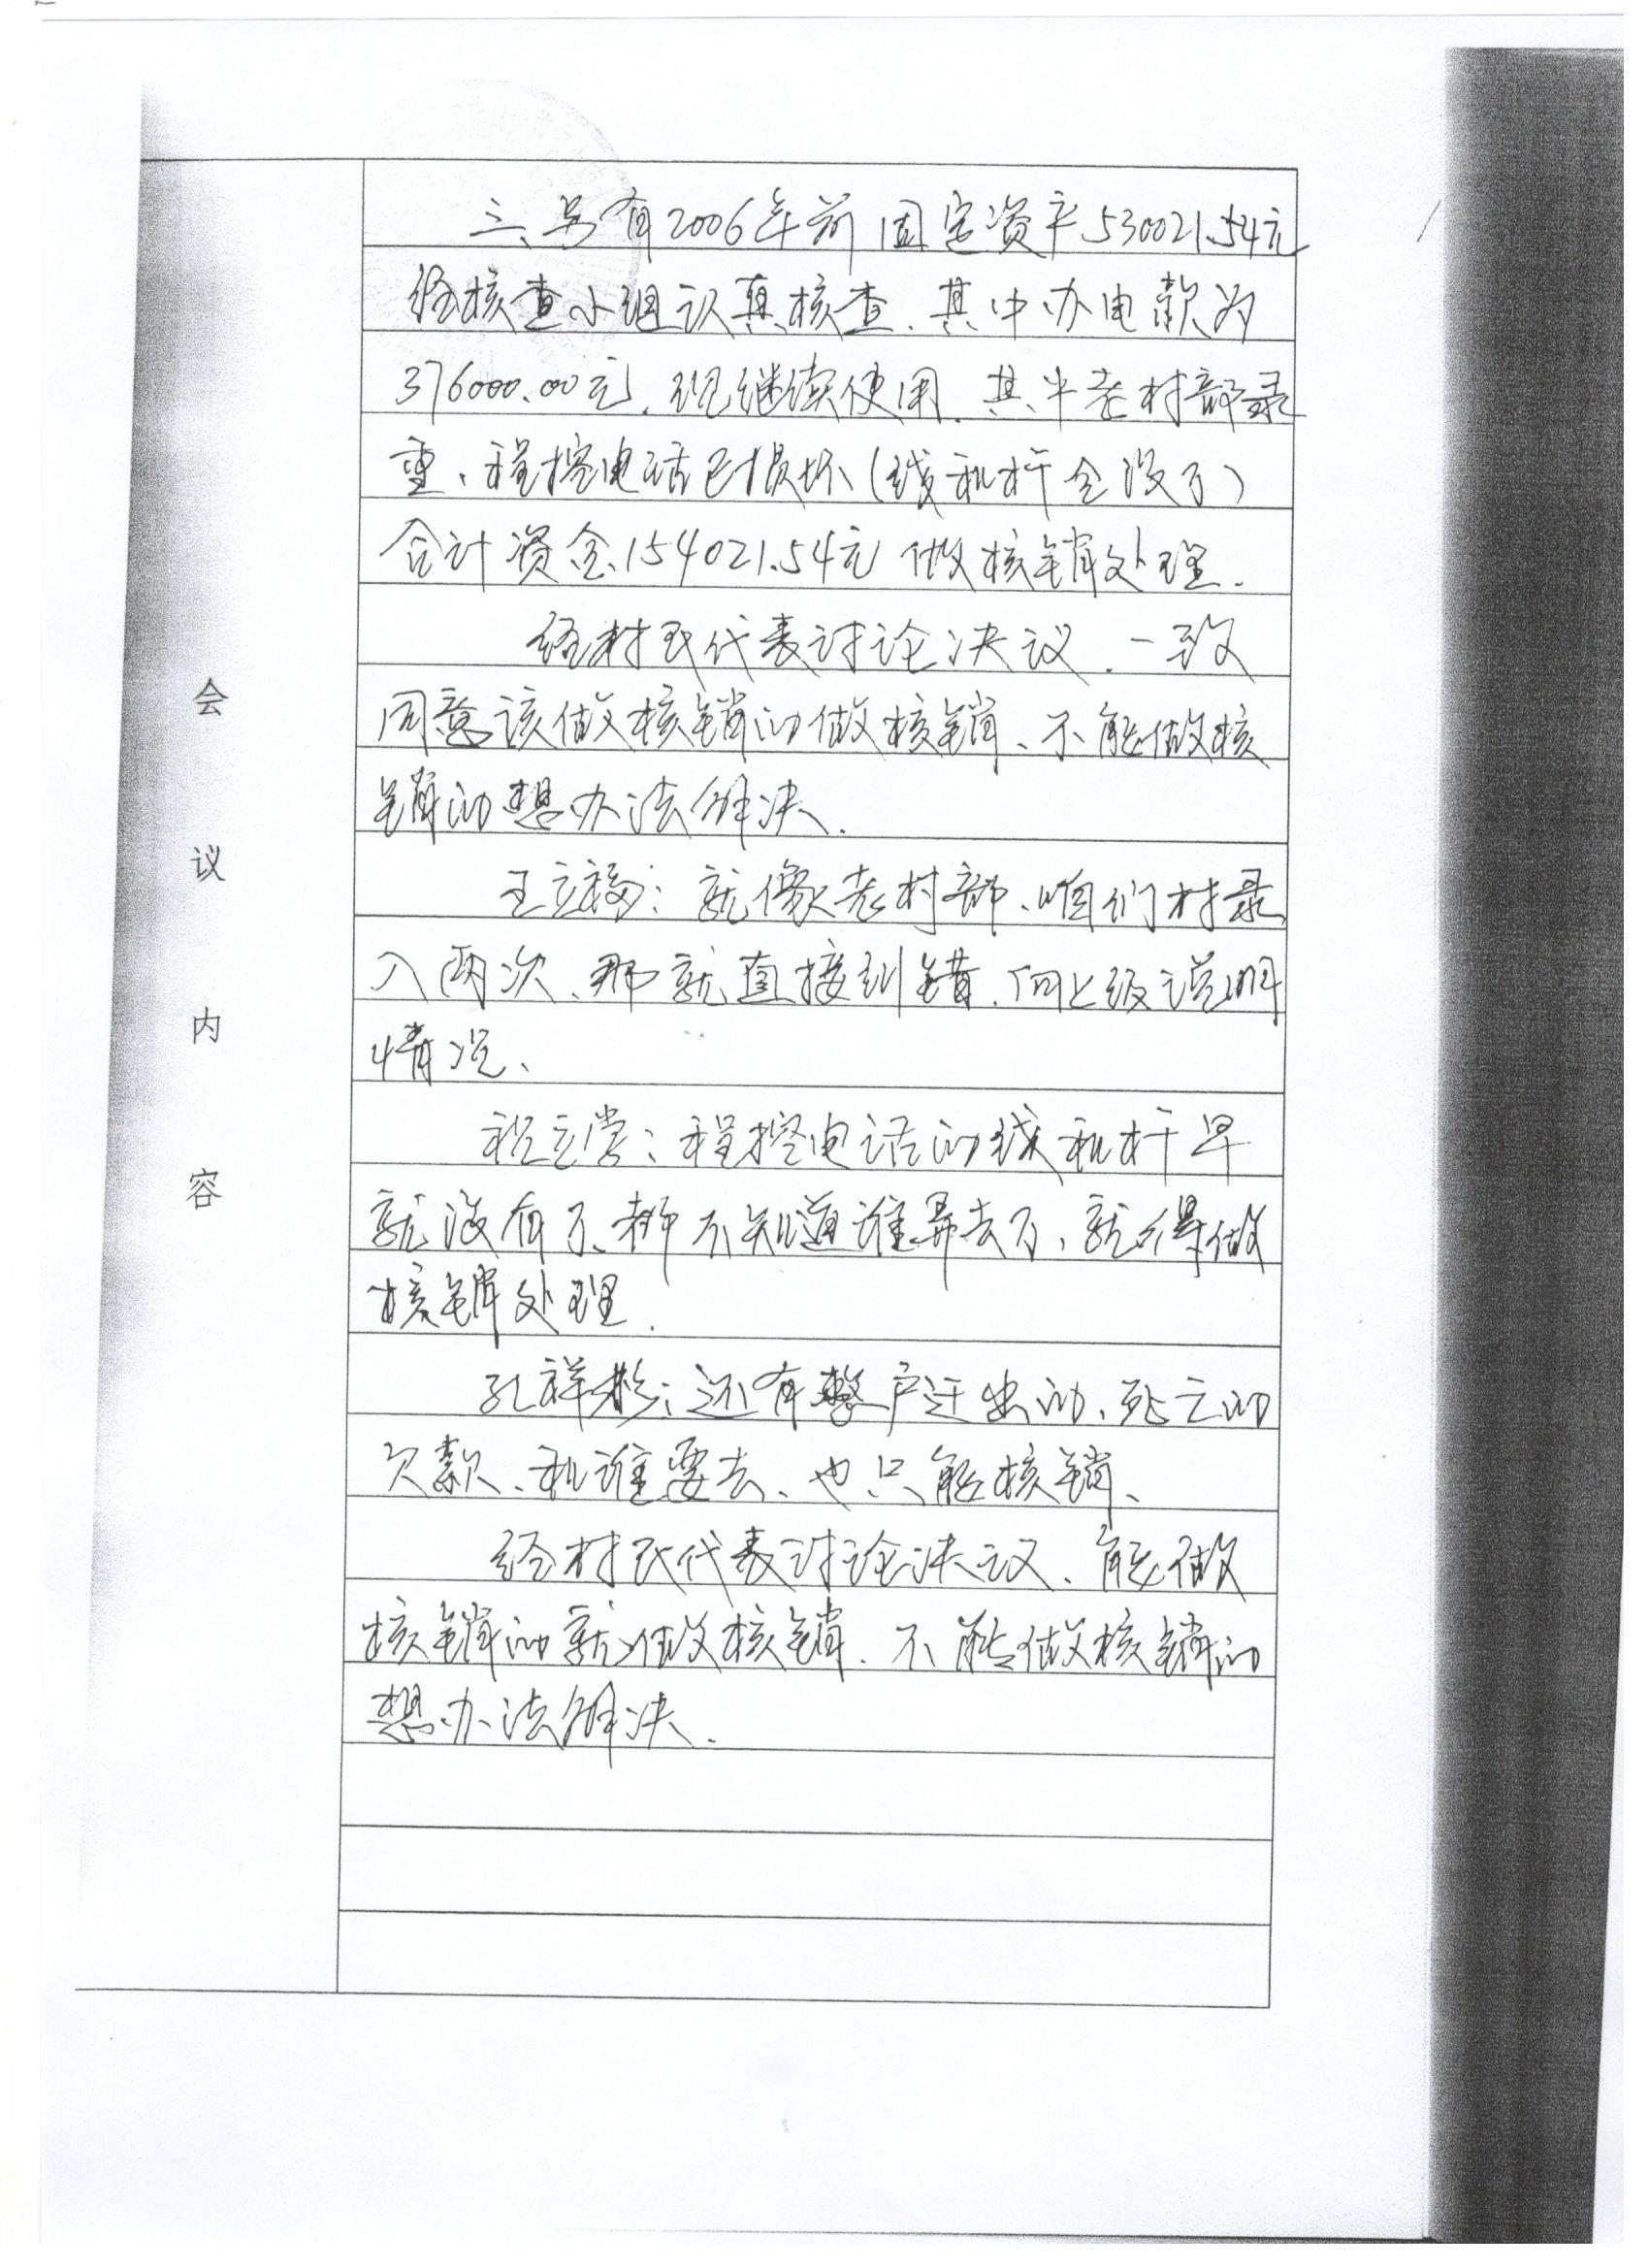 三、另有2006年前固定资产530021.54元
经核查小组认真核查、其中办电款为
376000.00元,现继续使用、其中老村部录
重、程控电话已损坏(线和杆全没了)
合计资金154021.54元做核销处理.
经村民代表讨论决议、一致
同意该做核销的做核销、不能做核
销的想办法解决.
会
议
内
容
王立福:就像老村部、咱们村录
入两次、那就直接纠错、向上级说明
情况、
程立学:程控电话的线和杆早
就没有了、都不知道谁弄去了、就得做
核销处理.
孔祥彬:还有整户迁出的、死亡的
欠款、和谁要去、也只能核销、
经村民代表讨论决议、能做
核销的就做核销、不能做核销的
想办法解决.